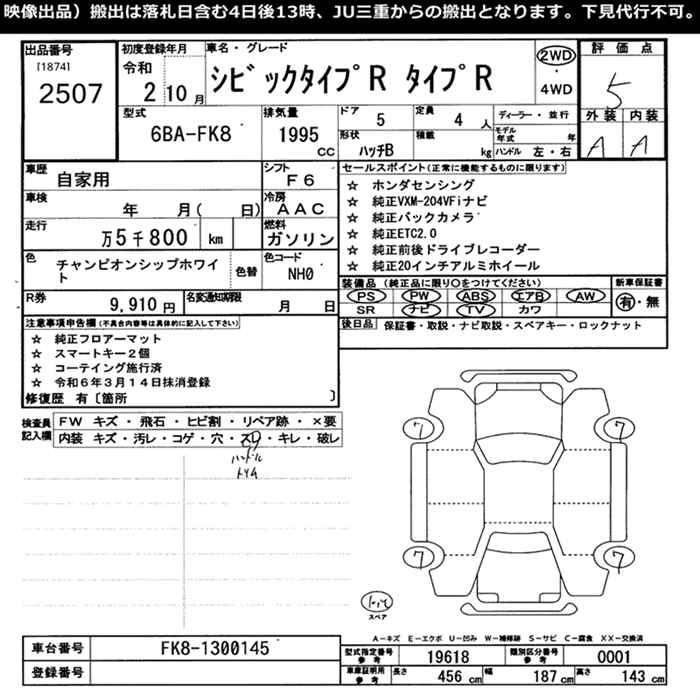 映像出品）搬出は落札日含む4日後13時、JU三重からの搬出となります。下見代行不可。
出品番号
[1874]
2507
初度登録年月
令和
2 10月
車名・グレード
シビックタイプR タイプR
2WD
・
4WD
評価点
5
外装 内装
A A
型式
6BA-FK8
排気量
1995
cc
ドア
5
定員
4 人
形状
ハッチB
積載
kg
ディーラー・並行
モデル年式 年
ハンドル 左・右
車歴
自家用
シフト
F6
車検
年 月( 日)
冷房
AAC
走行
万5千800 km
燃料
ガソリン
色
チャンピオンシップホワイト
色替
色コード
NH0
R券
9,910円
名変通知期限
月 日
セールスポイント(正常に機能するものに限ります)
☆ ホンダセンシング
☆ 純正VXM-204VFiナビ
☆ 純正バックカメラ
☆ 純正ETC2.0
☆ 純正前後ドライブレコーダー
☆ 純正20インチアルミホイール
装備品(純正品に限り○をつけてください)
PS PW ABS エアB AW
SR ナビ TV カワ
新車保証書
有・無
後日品 保証書・取説・ナビ取説・スペアキー・ロックナット
注意事項申告欄(不具合内容等は具体的に記入して下さい)
☆ 純正フロアーマット
☆ スマートキー2個
☆ コーティング施行済
☆ 令和6年3月14日抹消登録
修復歴 有〔箇所 〕
検査員
記入欄
FW キズ・飛石・ヒビ割・リペア跡・×要
内装 キズ・汚レ・コゲ・穴・スレ・キレ・破レ
ハンドル
トリム
7 7
7 7
スペア
A－キズ E－エクボ U－凹み W－補修跡 S－サビ C－腐食 XX－交換済
車台番号 FK8-1300145
登録番号
型式指定番号
参考
19618
類別区分番号
参考
0001
車庫証明用
参考
長さ 456 cm 幅 187 cm 高さ 143 cm